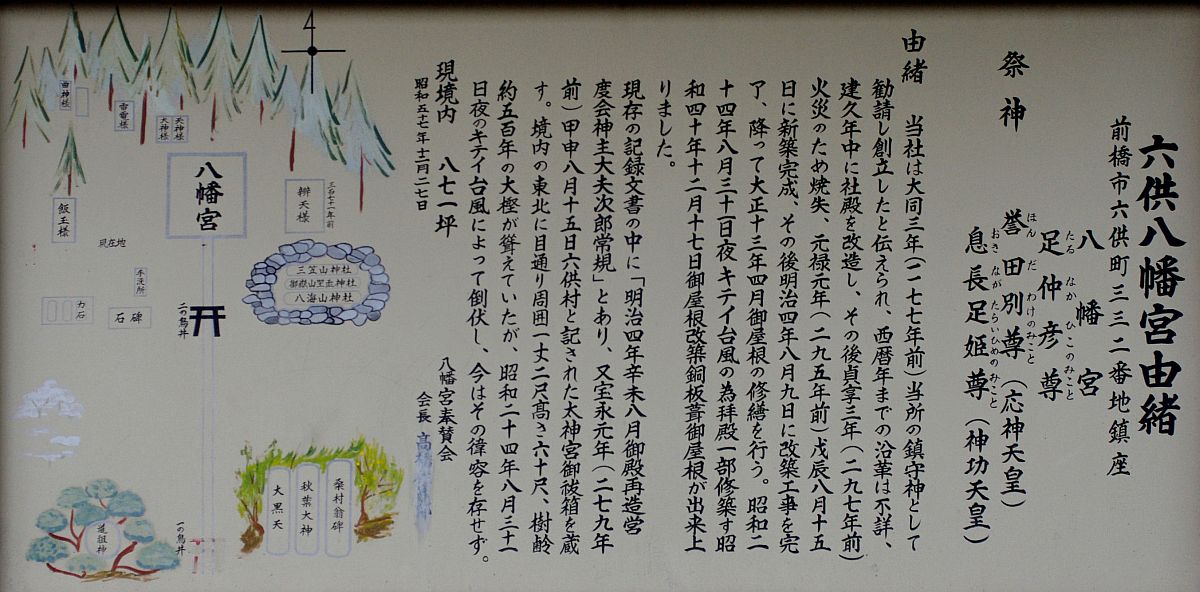 六供八幡宮由緒
前橋市六供町三三二番地鎮座
祭神
八幡宮
足仲彦尊
たる なか ひこのみこと
誉田別尊(応神天皇)
ほん だ わけのみこと
息長足姫尊(神功天皇)
おき なが たらいひめのみこと
由緒 当社は大同三年(一一七七年前)当所の鎮守神として
勧請し創立したと伝えられ、西暦年までの沿革は不詳、
建久年中に社殿を改造し、その後貞享三年(二九七年前)
火災のため焼失、元禄元年(二九五年前)戊辰八月十五
日に新築完成、その後明治四年八月九日に改築工事を完
了、降って大正十三年四月御屋根の修繕を行う。昭和二
十四年八月三十一日夜キテイ台風の為拝殿一部修築す昭
和四十年十二月十七日御屋根改築銅板葺御屋根が出来上
りました。
現存の記録文書の中に「明治四年辛未八月御殿再造営
度会神主大夫次郎常規」とあり、又宝永元年(二七九年
前)甲申八月十五日六供村と記された太神宮御祓箱を蔵
す。境内の東北に目通り周囲一丈二尺髙さ六十尺、樹齢
約五百年の大樫が聳えていたが、昭和二十四年八月三十一
日夜のキテイ台風によって倒伏し、今はその偉容を存せず。
現境内 八七一坪
八幡宮奉賛会
会長
三百七十一年前
辨天様
三笠山神社
御嶽山座主神社
八海山神社
桑村翁碑
秋葉大神
大黒天
八幡宮
二の鳥井
一の鳥井
天神様
犬神様
雷電様
飯玉様
現在地
手洗所
石碑
力石
道祖神